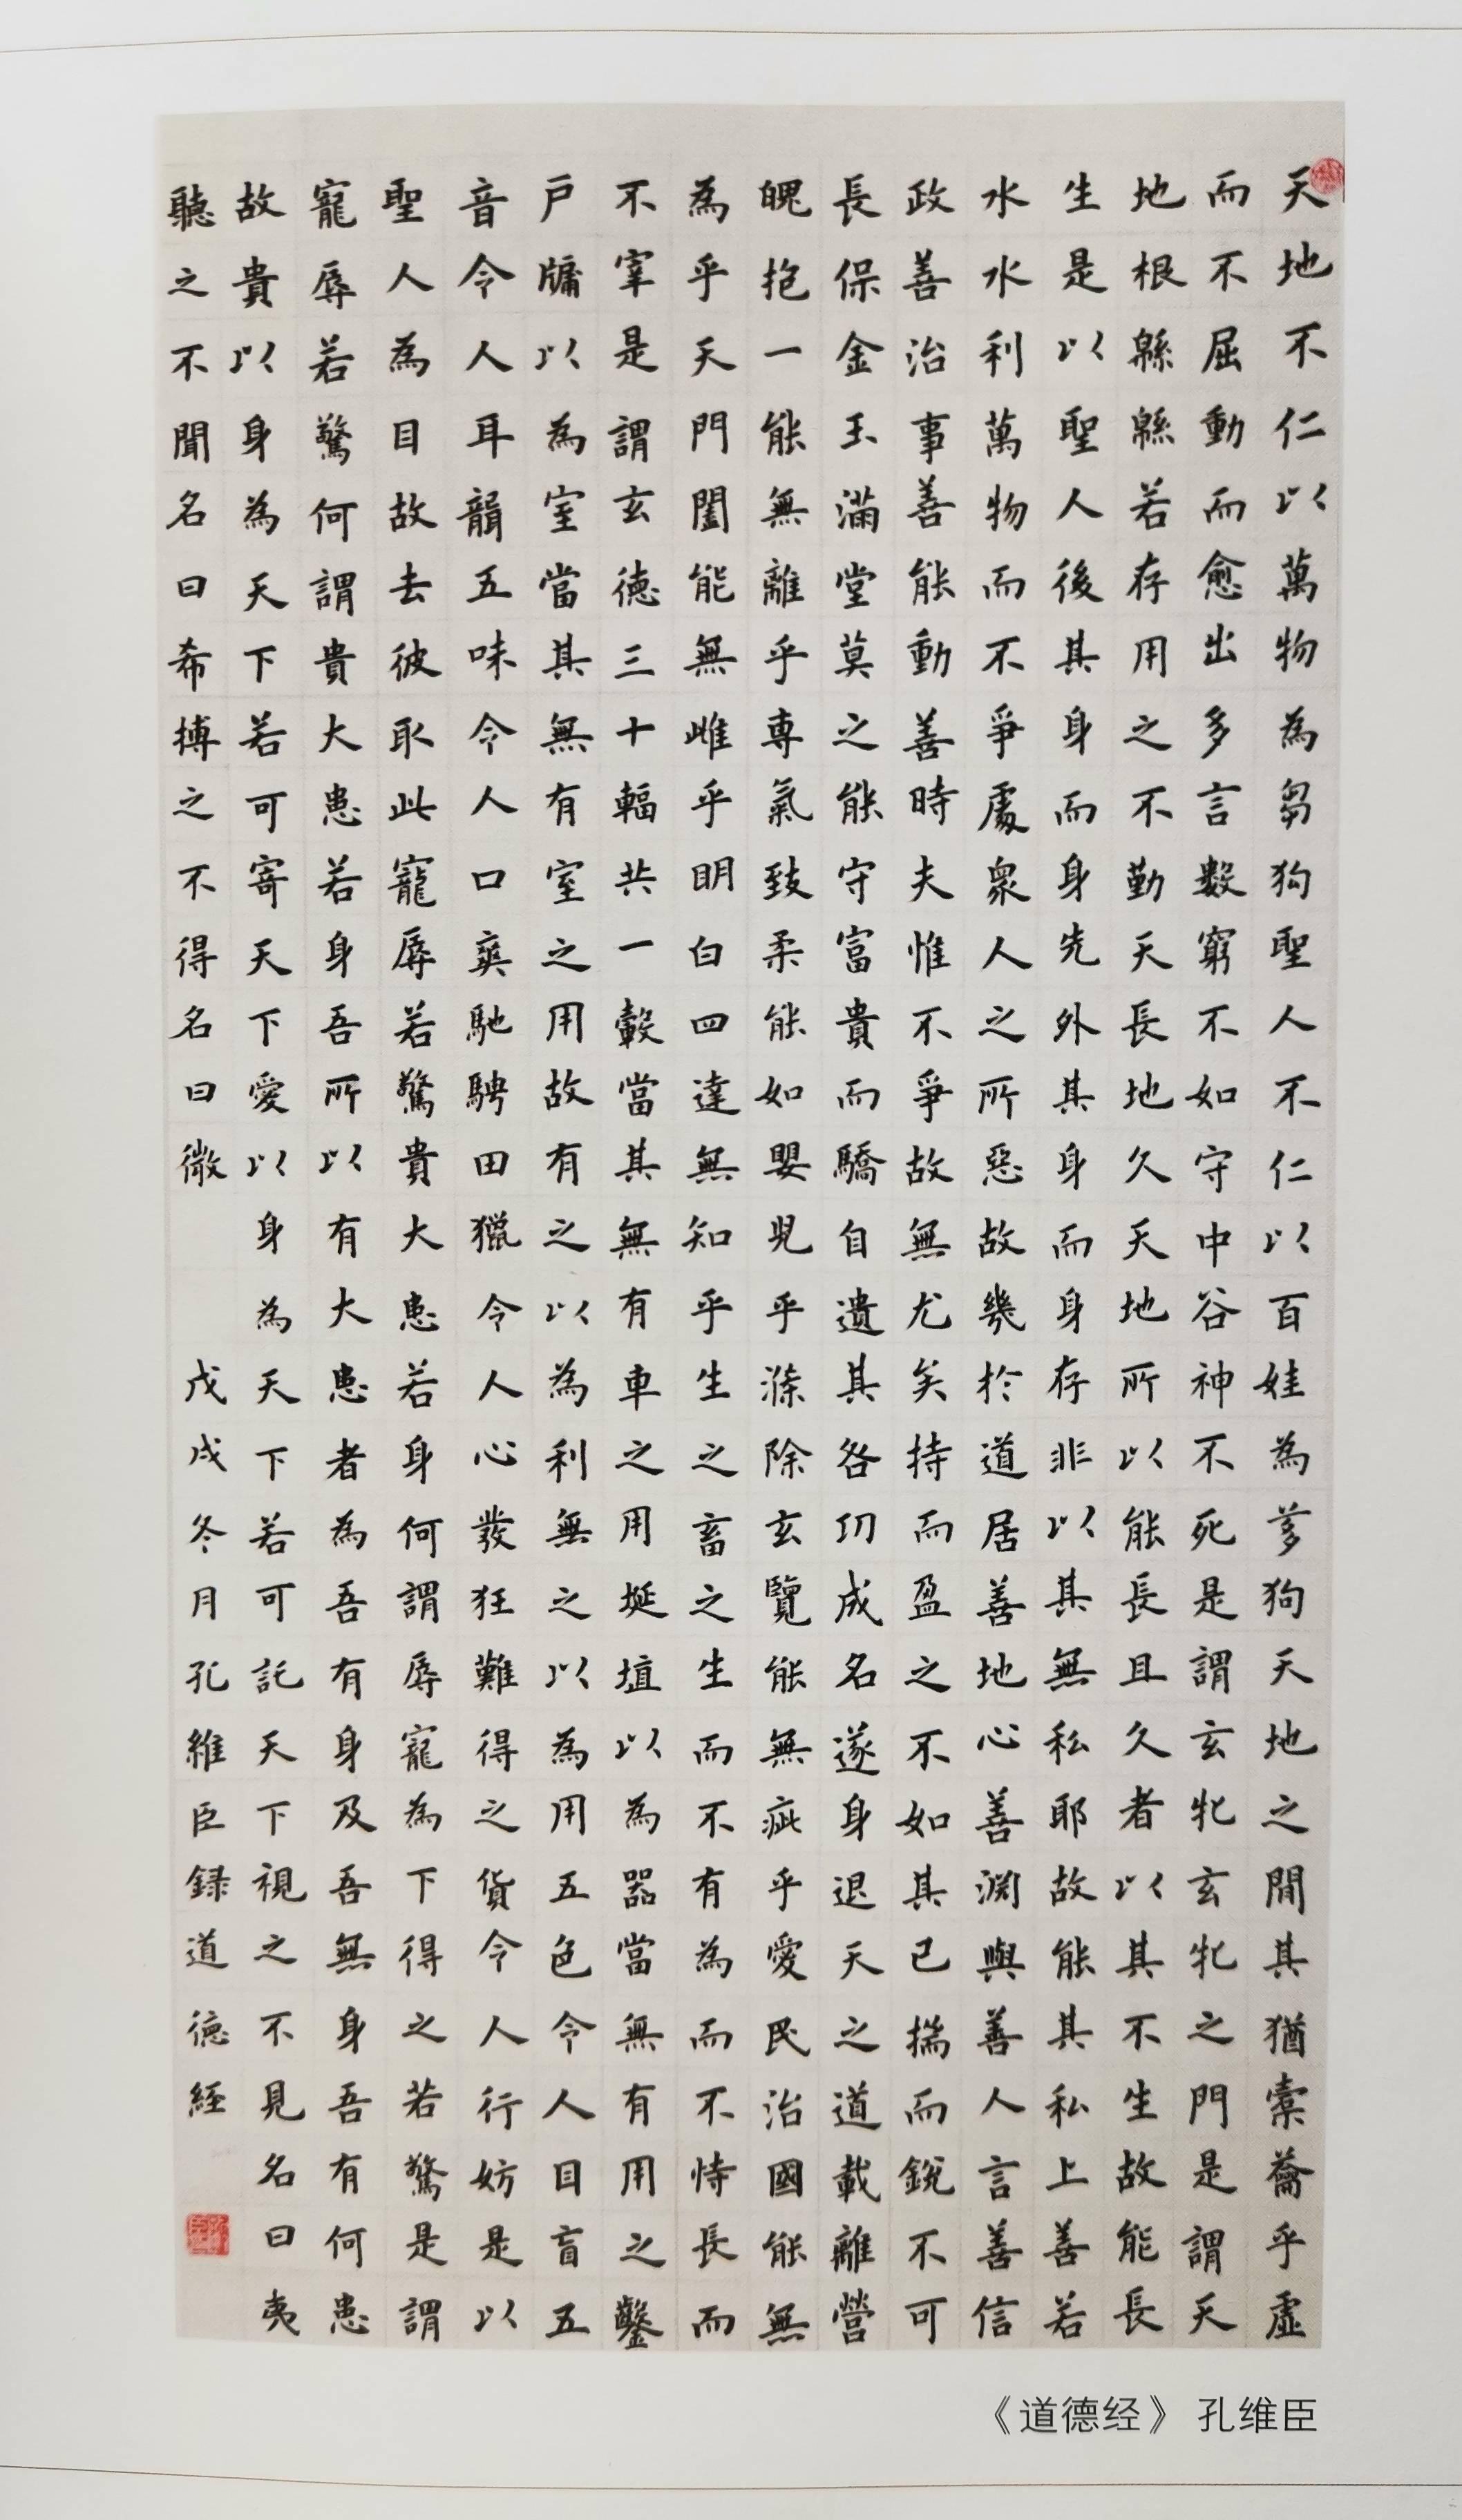 天地不仁以萬物為芻狗聖人不仁以百姓為芻狗天地之間其猶橐籥乎虛
而不屈動而愈出多言數窮不如守中谷神不死是謂玄牝玄牝之門是謂天
地根緜緜若存用之不勤天長地久天地所以能長且久者以其不生故能長
生是以聖人後其身而身先外其身而身存非以其無私耶故能其私上善若
水水利萬物而不爭處衆人之所惡故幾於道居善地心善淵與善人言善信
政善治事善能動善時夫惟不爭故無尤矣持而盈之不如其已揣而銳不可
長保金玉滿堂莫之能守富貴而驕自遺其咎功成名遂身退天之道載離營
魄抱一能無離乎專氣致柔能如嬰兒乎滌除玄覽能無疵乎愛民治國能無
為乎天門闔能無雌乎明白四達無知乎生之畜之生而不有為而不恃長而
不宰是謂玄德三十輻共一轂當其無有車之用埏埴以為器當無有用之鑿
戶牖以為室當其無有室之用故有之以為利無之以為用五色令人目盲五
音令人耳聾五味令人口爽馳騁田獵令人心發狂難得之貨令人行妨是以
聖人為目故去彼取此寵辱若驚貴大患若身何謂辱寵為下得之若驚是謂
寵辱若驚何謂貴大患若身吾所以有大患者為吾有身及吾無身吾有何患
故貴以身為天下若可寄天下愛以身為天下若可託天下視之不見名曰夷
聽之不聞名曰希搏之不得名曰微
戊戌冬月孔維臣録道德經
《道德经》 孔维臣